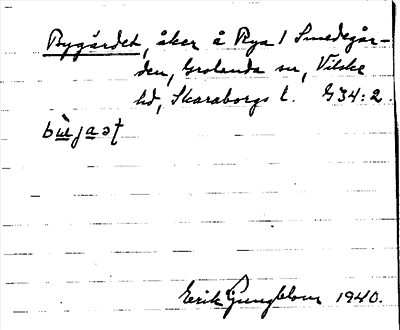 Bygärdet, åker å Rya 1 Smedegår-
den, Grolanda sn, Vilske
hd, Skaraborgs l. G34:2.
Erik Ljungblom 1940.